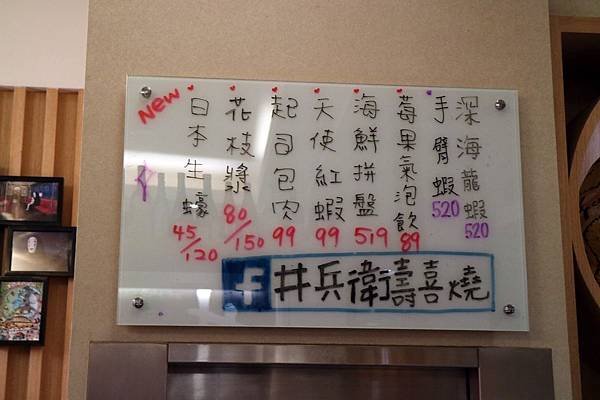 New
日本生蠔
45/120
花枝漿
80/150
起司包肉
99
天使紅蝦
99
海鮮拼盤
519
莓果氣泡飲
89
手臂蝦
520
深海龍蝦
520
f 井兵衛壽喜燒